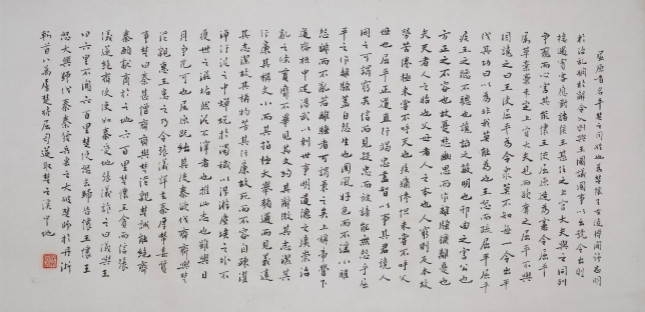 屈原者名平楚之同姓也為楚懷王左徒博聞彊志明
於治亂嫻於辭令入則與王圖議國事以出號令出則
接遇賓客應對諸侯王甚任之上官大夫與之同列
爭寵而心害其能懷王使屈原造為憲令屈平
屬草稾未定上官大夫見而欲奪之屈平不與
因讒之曰王使屈平為令眾莫不知每一令出平
伐其功曰以為非我莫能為王怒而疏屈平屈平
疾王之聽不聰也讒諂之蔽明也邪曲之害公也
方正之不容也故憂愁幽思而作離騷離憂也
夫天者人之始也父母者人之本也人窮則反本故
勞苦倦極未嘗不呼天也疾痛慘怛未嘗不呼父
母也屈平正道直行竭忠盡智以事其君讒人
間之可謂窮矣信而見疑忠而被謗能無怨乎屈
平之作離騷蓋自怨生也國風好色而不淫小雅
怨誹而不亂若離騷者可謂兼之矣上稱帝嚳下
道齊桓中述湯武以刺世事明道德之廣崇治
亂之條貫靡不畢見其文約其辭微其志潔其
行廉其稱文小而其指極大舉類邇而見義遠
其志潔故其稱物芳其行廉故死而不容自疏濯
淖汙泥之中蟬蛻於濁穢以浮游塵埃之外不
獲世之滋垢皭然泥而不滓者也推此志也雖與日
月爭光可也屈原既絀其後秦欲伐齊齊與楚
從親惠王患之乃令張儀詳去秦厚幣委質
事楚曰秦甚憎齊齊與楚從親楚誠能絕齊
秦願獻商於之地六百里楚懷王貪而信張
儀遂絕齊使使如秦受地張儀詐之曰儀與王
約六里不聞六百里楚使怒去歸告懷王懷王
怒大興師伐秦秦發兵擊之大破楚師於丹淅
斬首八萬虜楚將屈匄遂取楚之漢中地